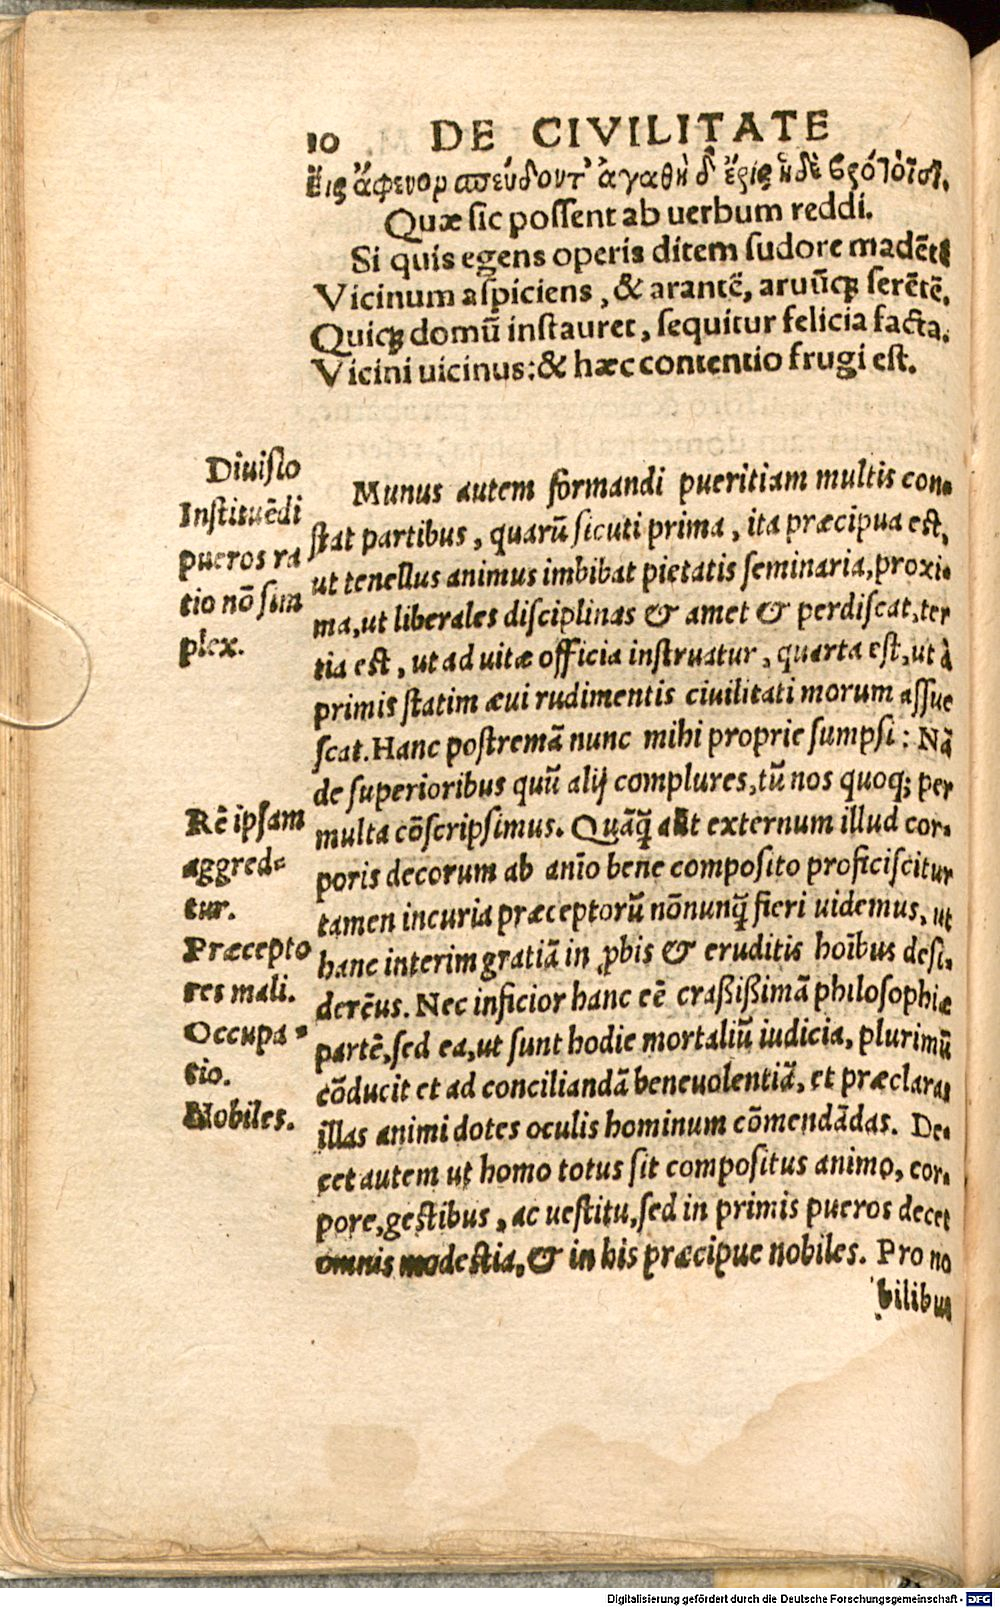 10 DE CIVILITATE
Εἰς ἄφενορ σπεύδοντ' ἀγαθὴ δ' ἔρις ἥδε βροτοῖσι.
Quæ sic possent ab uerbum reddi.
Si quis egens operis ditem sudore madẽte
Vicinum aspiciens, & arantẽ, aruũq; serẽtẽ,
Quiq; domũ instauret, sequitur felicia facta.
Vicini uicinus: & hæc contentio frugi est.
Diuisio
Instituẽdi
pueros ra
tio nõ sim
plex.
Munus autem formandi pueritiam multis con-
stat partibus, quarũ sicuti prima, ita præcipua est,
ut tenellus animus imbibat pietatis seminaria, proxi-
ma, ut liberales disciplinas & amet & perdiscat, ter
tia est, ut ad uitæ officia instruatur, quarta est, ut à
primis statim æui rudimentis ciuilitati morum assue
scat. Hanc postremã nunc mihi proprie sumpsi: Nã
de superioribus quũ alij complures, tũ nos quoq; per
multa cõscripsimus. Quãq̃ aũt externum illud cor-
poris decorum ab anĩo bene composito proficiscitur
tamen incuria præceptorũ nõnunq̃ fieri uidemus, ut
hanc interim gratiã in ꝓbis & eruditis hoĩbus desi-
derẽus. Nec inficior hanc eẽ craßißimã philosophiæ
partẽ, sed ea, ut sunt hodie mortaliũ iudicia, plurimũ
cõducit et ad conciliandã beneuolentiã, et præclaras
illas animi dotes oculis hominum cõmendãdas. De-
cet autem ut homo totus sit compositus animo, cor-
pore, gestibus, ac uestitu, sed in primis pueros decet
omnis modestia, & in his præcipue nobiles. Pro no
bilibus
Rẽ ipsam
aggredi-
tur.
Præcepto
res mali.
Occupa-
tio.
Nobiles.
Digitalisierung gefördert durch die Deutsche Forschungsgemeinschaft - DFG